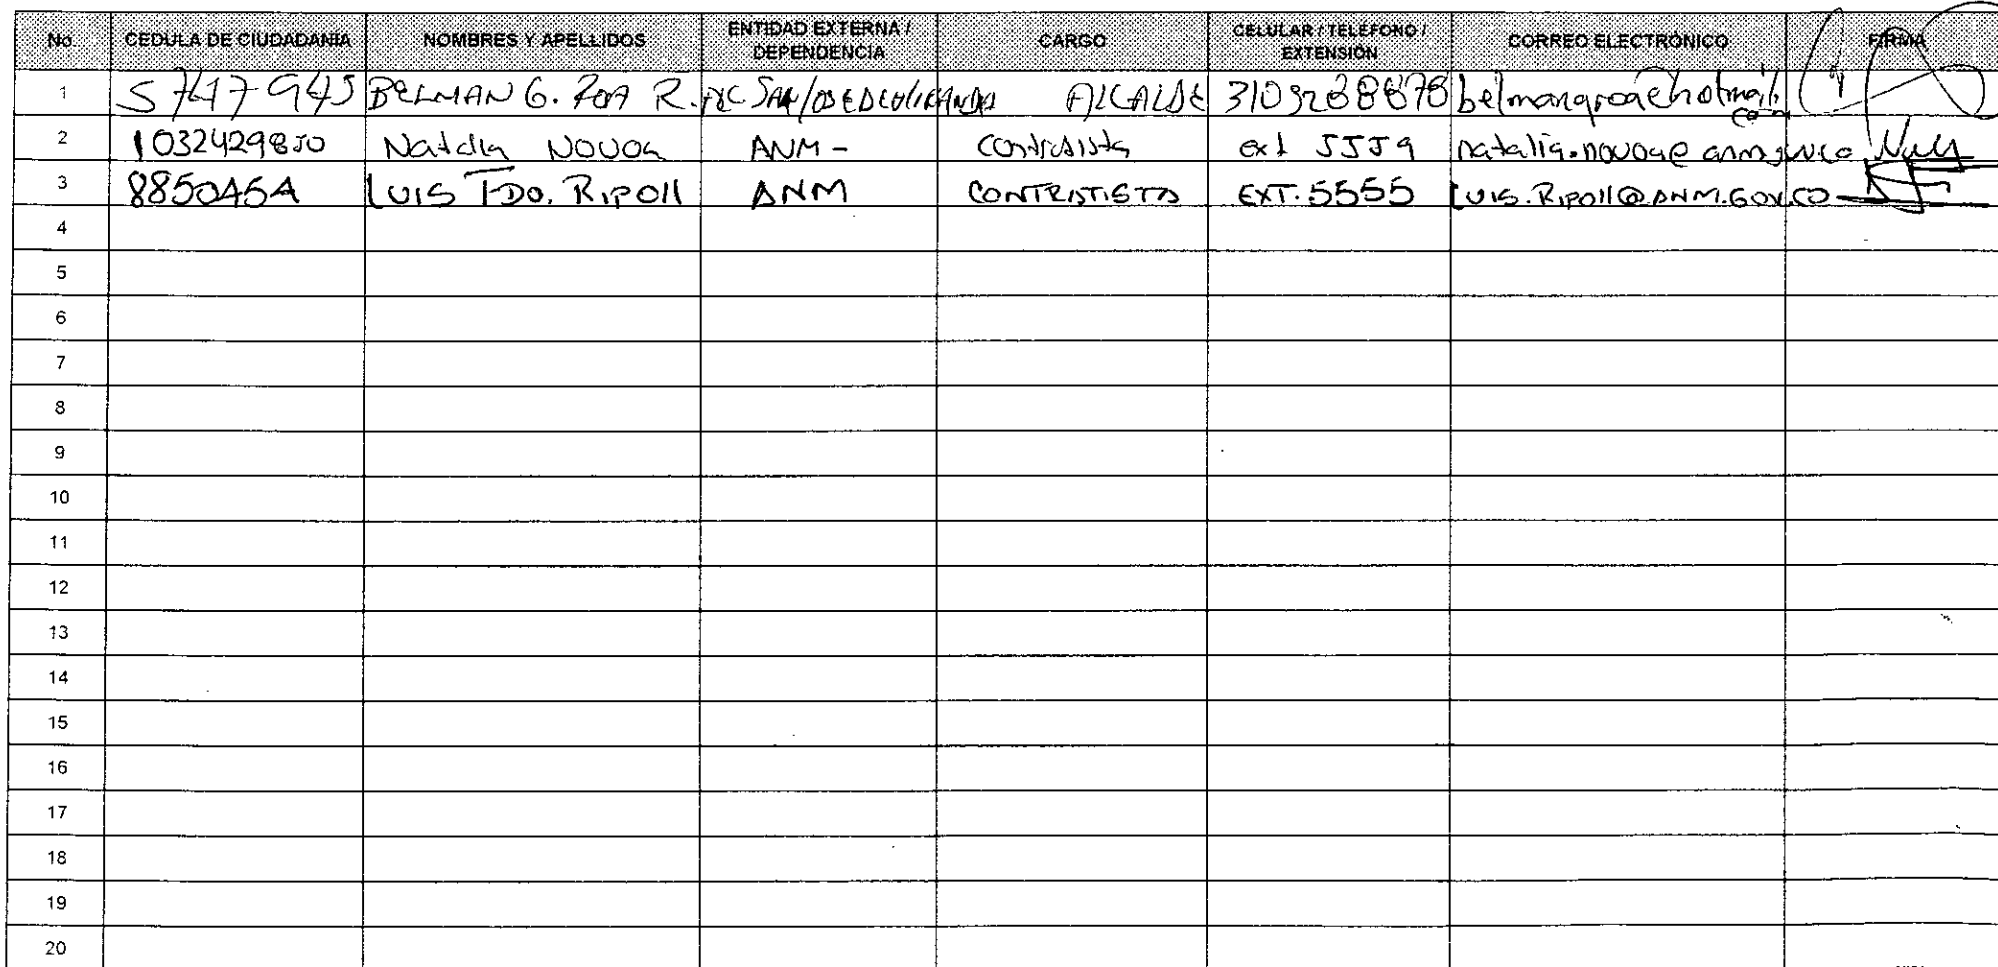 No. CEDULA DE CIUDADANIA NOMBRES Y APELLIDOS ENTIDAD EXTERNA / DEPENDENCIA CARGO CELULAR / TELÉFONO / EXTENSIÓN CORREO ELECTRÓNICO FIRMA
1 5747945 BELMAN G. ROA R. ALCALDE 3109288878 belmangroa@hotmail.com
2 1032429850 Natalia Novoa ANM - Contratista ext 5559
3 8850454 LUIS FDO. RIPOll ANM CONTRATISTA EXT. 5555 LUIS.RIPOll@ANM.GOV.CO
4
5
6
7
8
9
10
11
12
13
14
15
16
17
18
19
20